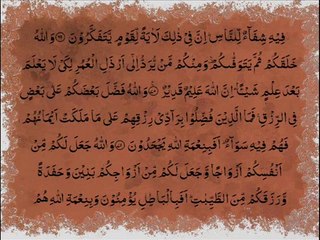 فِيْهِ شِفَآءٌ لِّلنَّاسِ ؕ اِنَّ فِيْ ذٰلِكَ لَاٰيَةً لِّقَوْمٍ يَّتَفَكَّرُوْنَ ﴿۶۹﴾ وَاللّٰهُ
خَلَقَكُمْ ثُمَّ يَتَوَفّٰىكُمْ ۙ وَمِنْكُمْ مَّنْ يُّرَدُّ اِلٰۤى اَرْذَلِ الْعُمُرِ لِكَىْ لَا يَعْلَمَ
بَعْدَ عِلْمٍ شَيْئًا ؕ اِنَّ اللّٰهَ عَلِيْمٌ قَدِيْرٌ ﴿۷۰﴾ وَاللّٰهُ فَضَّلَ بَعْضَكُمْ عَلٰى بَعْضٍ
فِى الرِّزْقِ ۚ فَمَا الَّذِيْنَ فُضِّلُوْا بِرَآدِّىْ رِزْقِهِمْ عَلٰى مَا مَلَكَتْ اَيْمَانُهُمْ
فَهُمْ فِيْهِ سَوَآءٌ ؕ اَفَبِنِعْمَةِ اللّٰهِ يَجْحَدُوْنَ ﴿۷۱﴾ وَاللّٰهُ جَعَلَ لَكُمْ مِّنْ
اَنْفُسِكُمْ اَزْوَاجًا وَّجَعَلَ لَكُمْ مِّنْ اَزْوَاجِكُمْ بَنِيْنَ وَحَفَدَةً
وَّرَزَقَكُمْ مِّنَ الطَّيِّبٰتِ ؕ اَفَبِالْبَاطِلِ يُؤْمِنُوْنَ وَبِنِعْمَتِ اللّٰهِ هُمْ